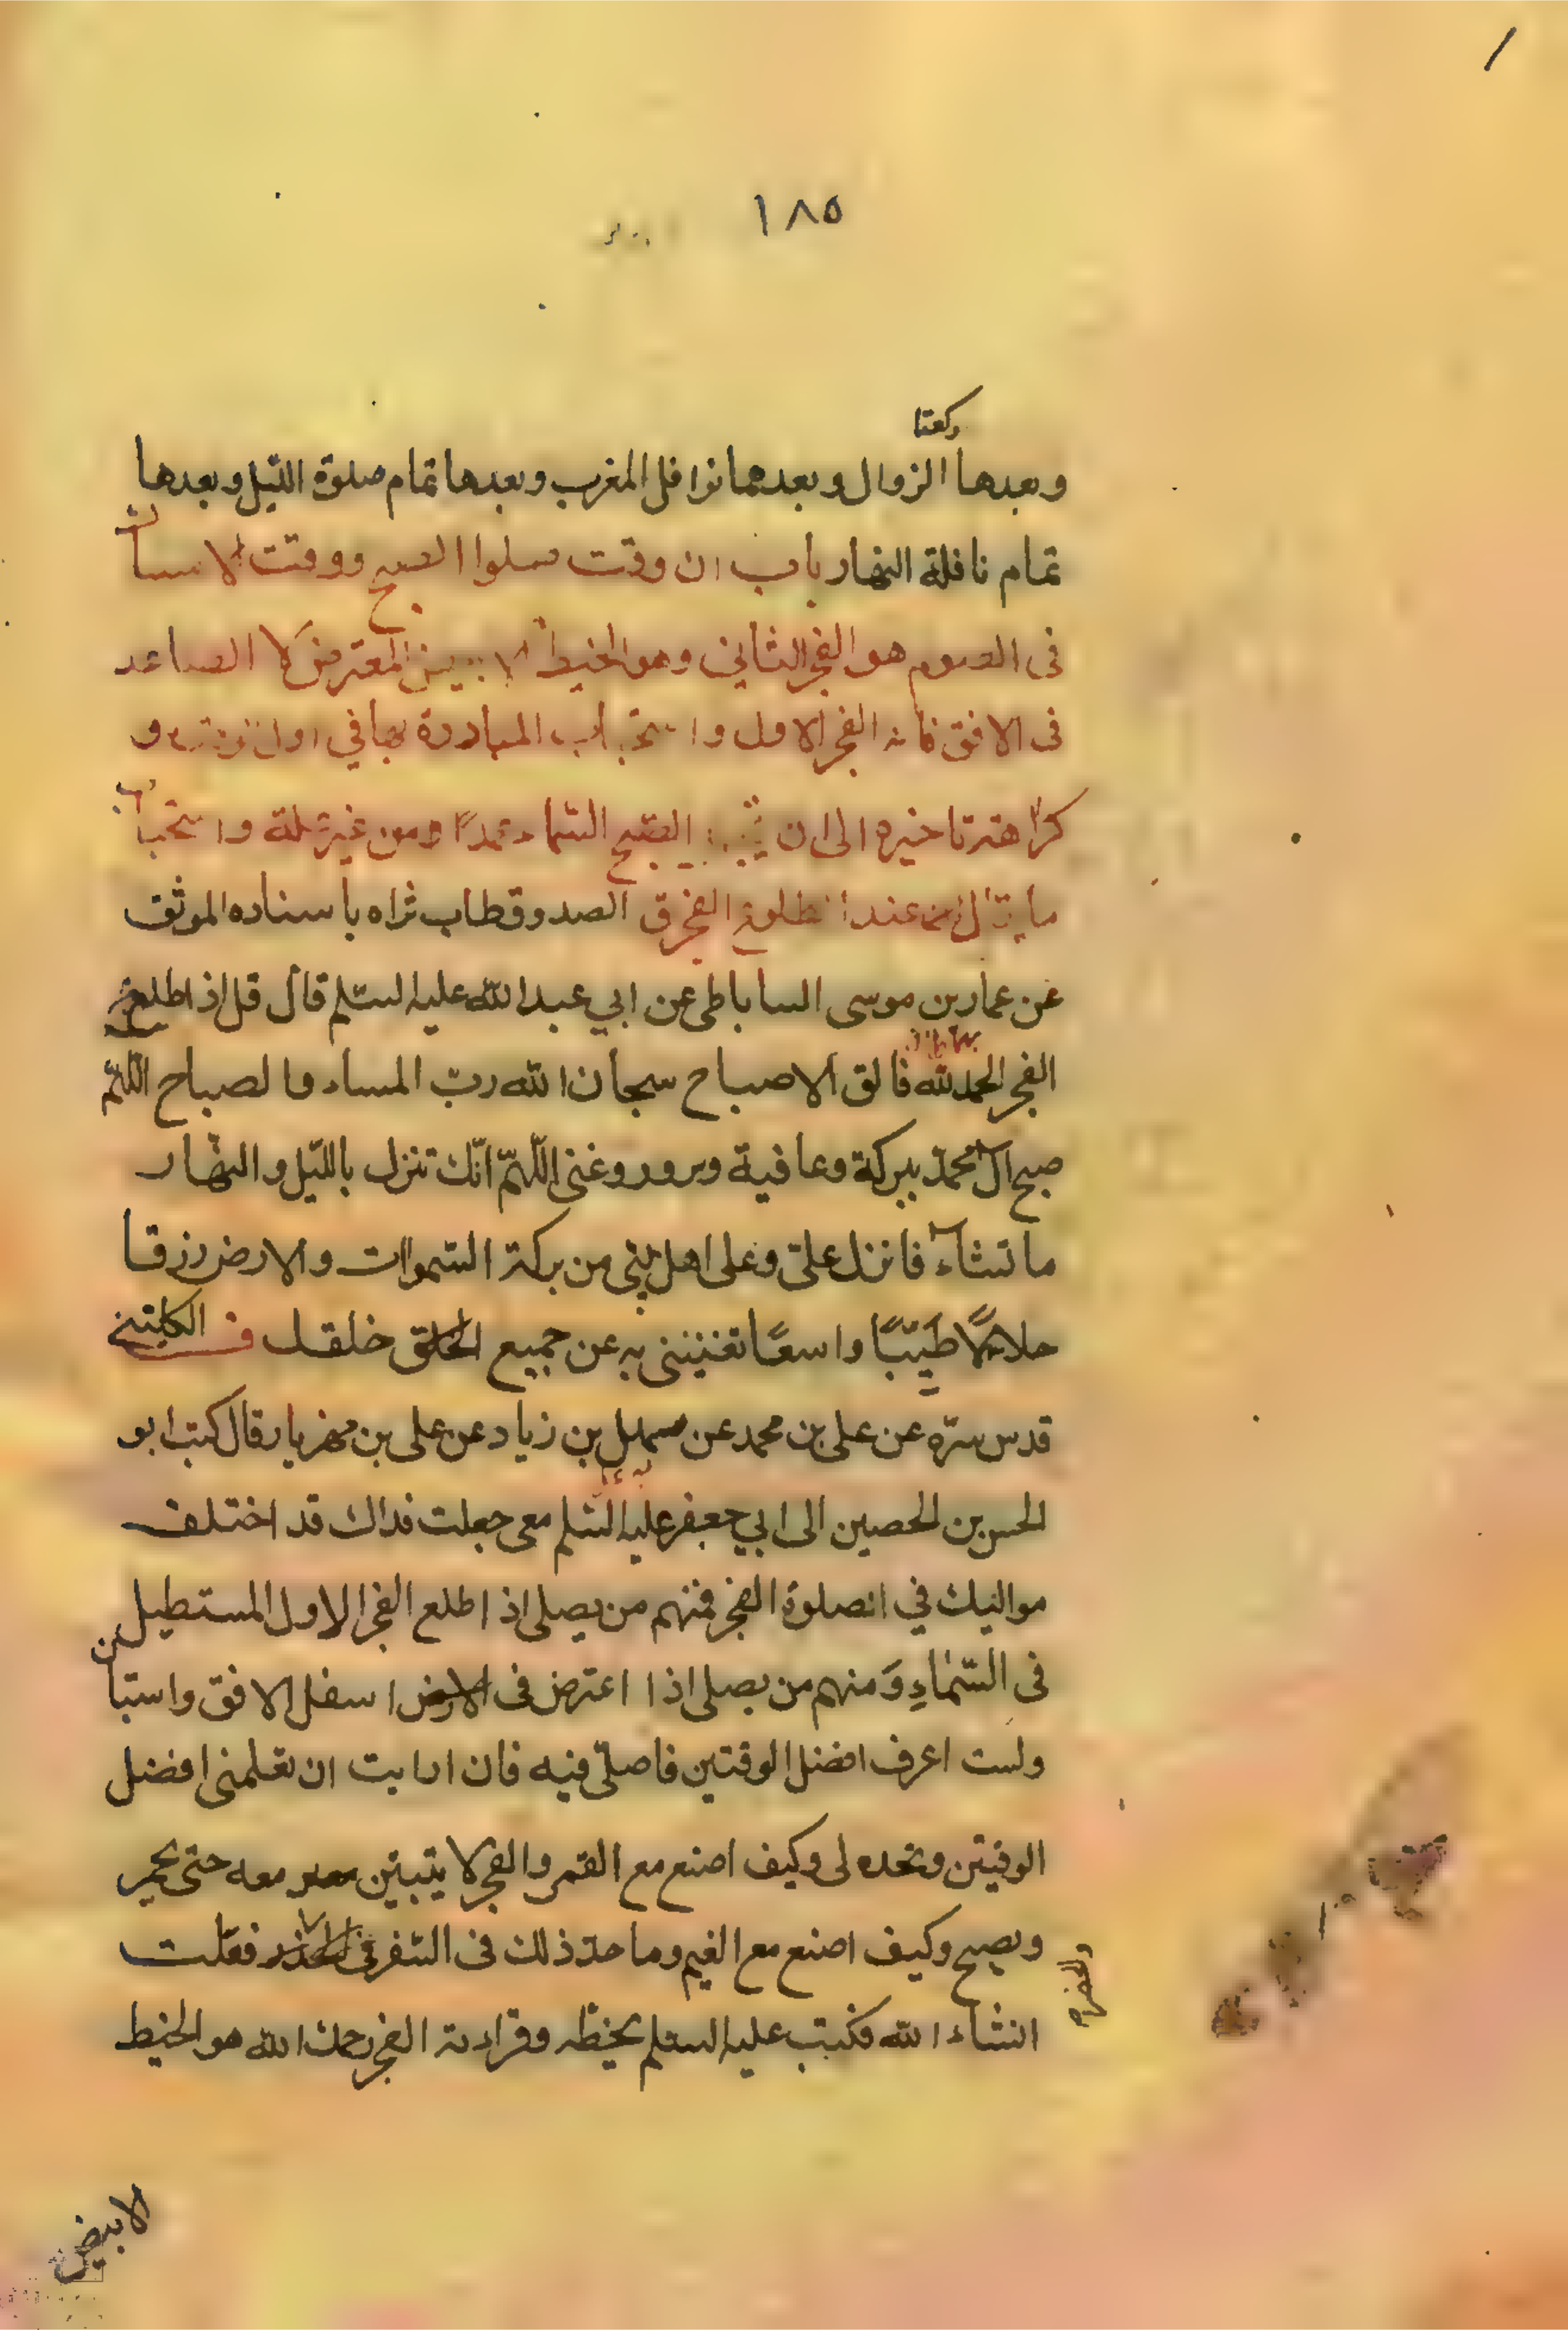 ١٨٥
ركعتا
وبعدها الزوال وبعدهما نوافل المغرب وبعدها تمام صلوة الليل وبعدها
تمام نافلة النهار باب ان وقت صلوا الصبح ووقت الامساك
فى الصوم هو الفجر الثاني وهو الخيط الابيض المعترض لا الصاعد
فى الافق فانه الفجر الاول واستحباب المبادرة بها في اول وقته و
كراهة تاخيره الى ان الصبح السماء عمدًا ومن غير علة واستحباب
ما يقال عند طلوع الفجر ق الصدوق طاب ثراه باسناده الموثق
عن عمار بن موسى الساباطى عن ابي عبدالله عليه السلم قال قل اذا طلع
الفجر الحمدلله فالق الاصباح سبحان الله رب المساء والصباح اللّهمّ
صبح ال محمدّ ببركة وعافية وسرور وغنى اللّهمّ انّك تنزل بالليّل والنهار
ما تشاء فانزل علىّ وعلى اهل بيتى من بركة السّموات والارض رزقا
حلالًا طيّبًا واسعًا تغنينى به عن جميع الخلق خلقك ف الكلينى
قدس سرّه عن على بن محمد عن سهل بن زياد عن على بن مهزيار قال كتب ابو
الحسن بن الحصين الى ابي جعفر عليه السّلم معى جعلت فداك قد اختلف
مواليك في الصلوة الفجر فمنهم من يصلى اذا طلع الفجر الاول المستطيل
فى السّماءِ وَمنهم من يصلى اذا اعترض فى الارض اسفل الافق واستبان
ولست اعرف افضل الوقتين فاصلّى فيه فان ارايت ان تعلمنى افضل
الوقيتن وتحده لى وكيف اصنع مع القمر والفجر لا يتبيّن معه حتى يحمر
ويصبح وكيف اصنع مع الغيم وما حدّ ذلك فى السّفر فعلت
والحضر
انشاء الله فكتب عليه السلم بخطّه وقراته الفجر رحمك الله هو الخيط
الابيض